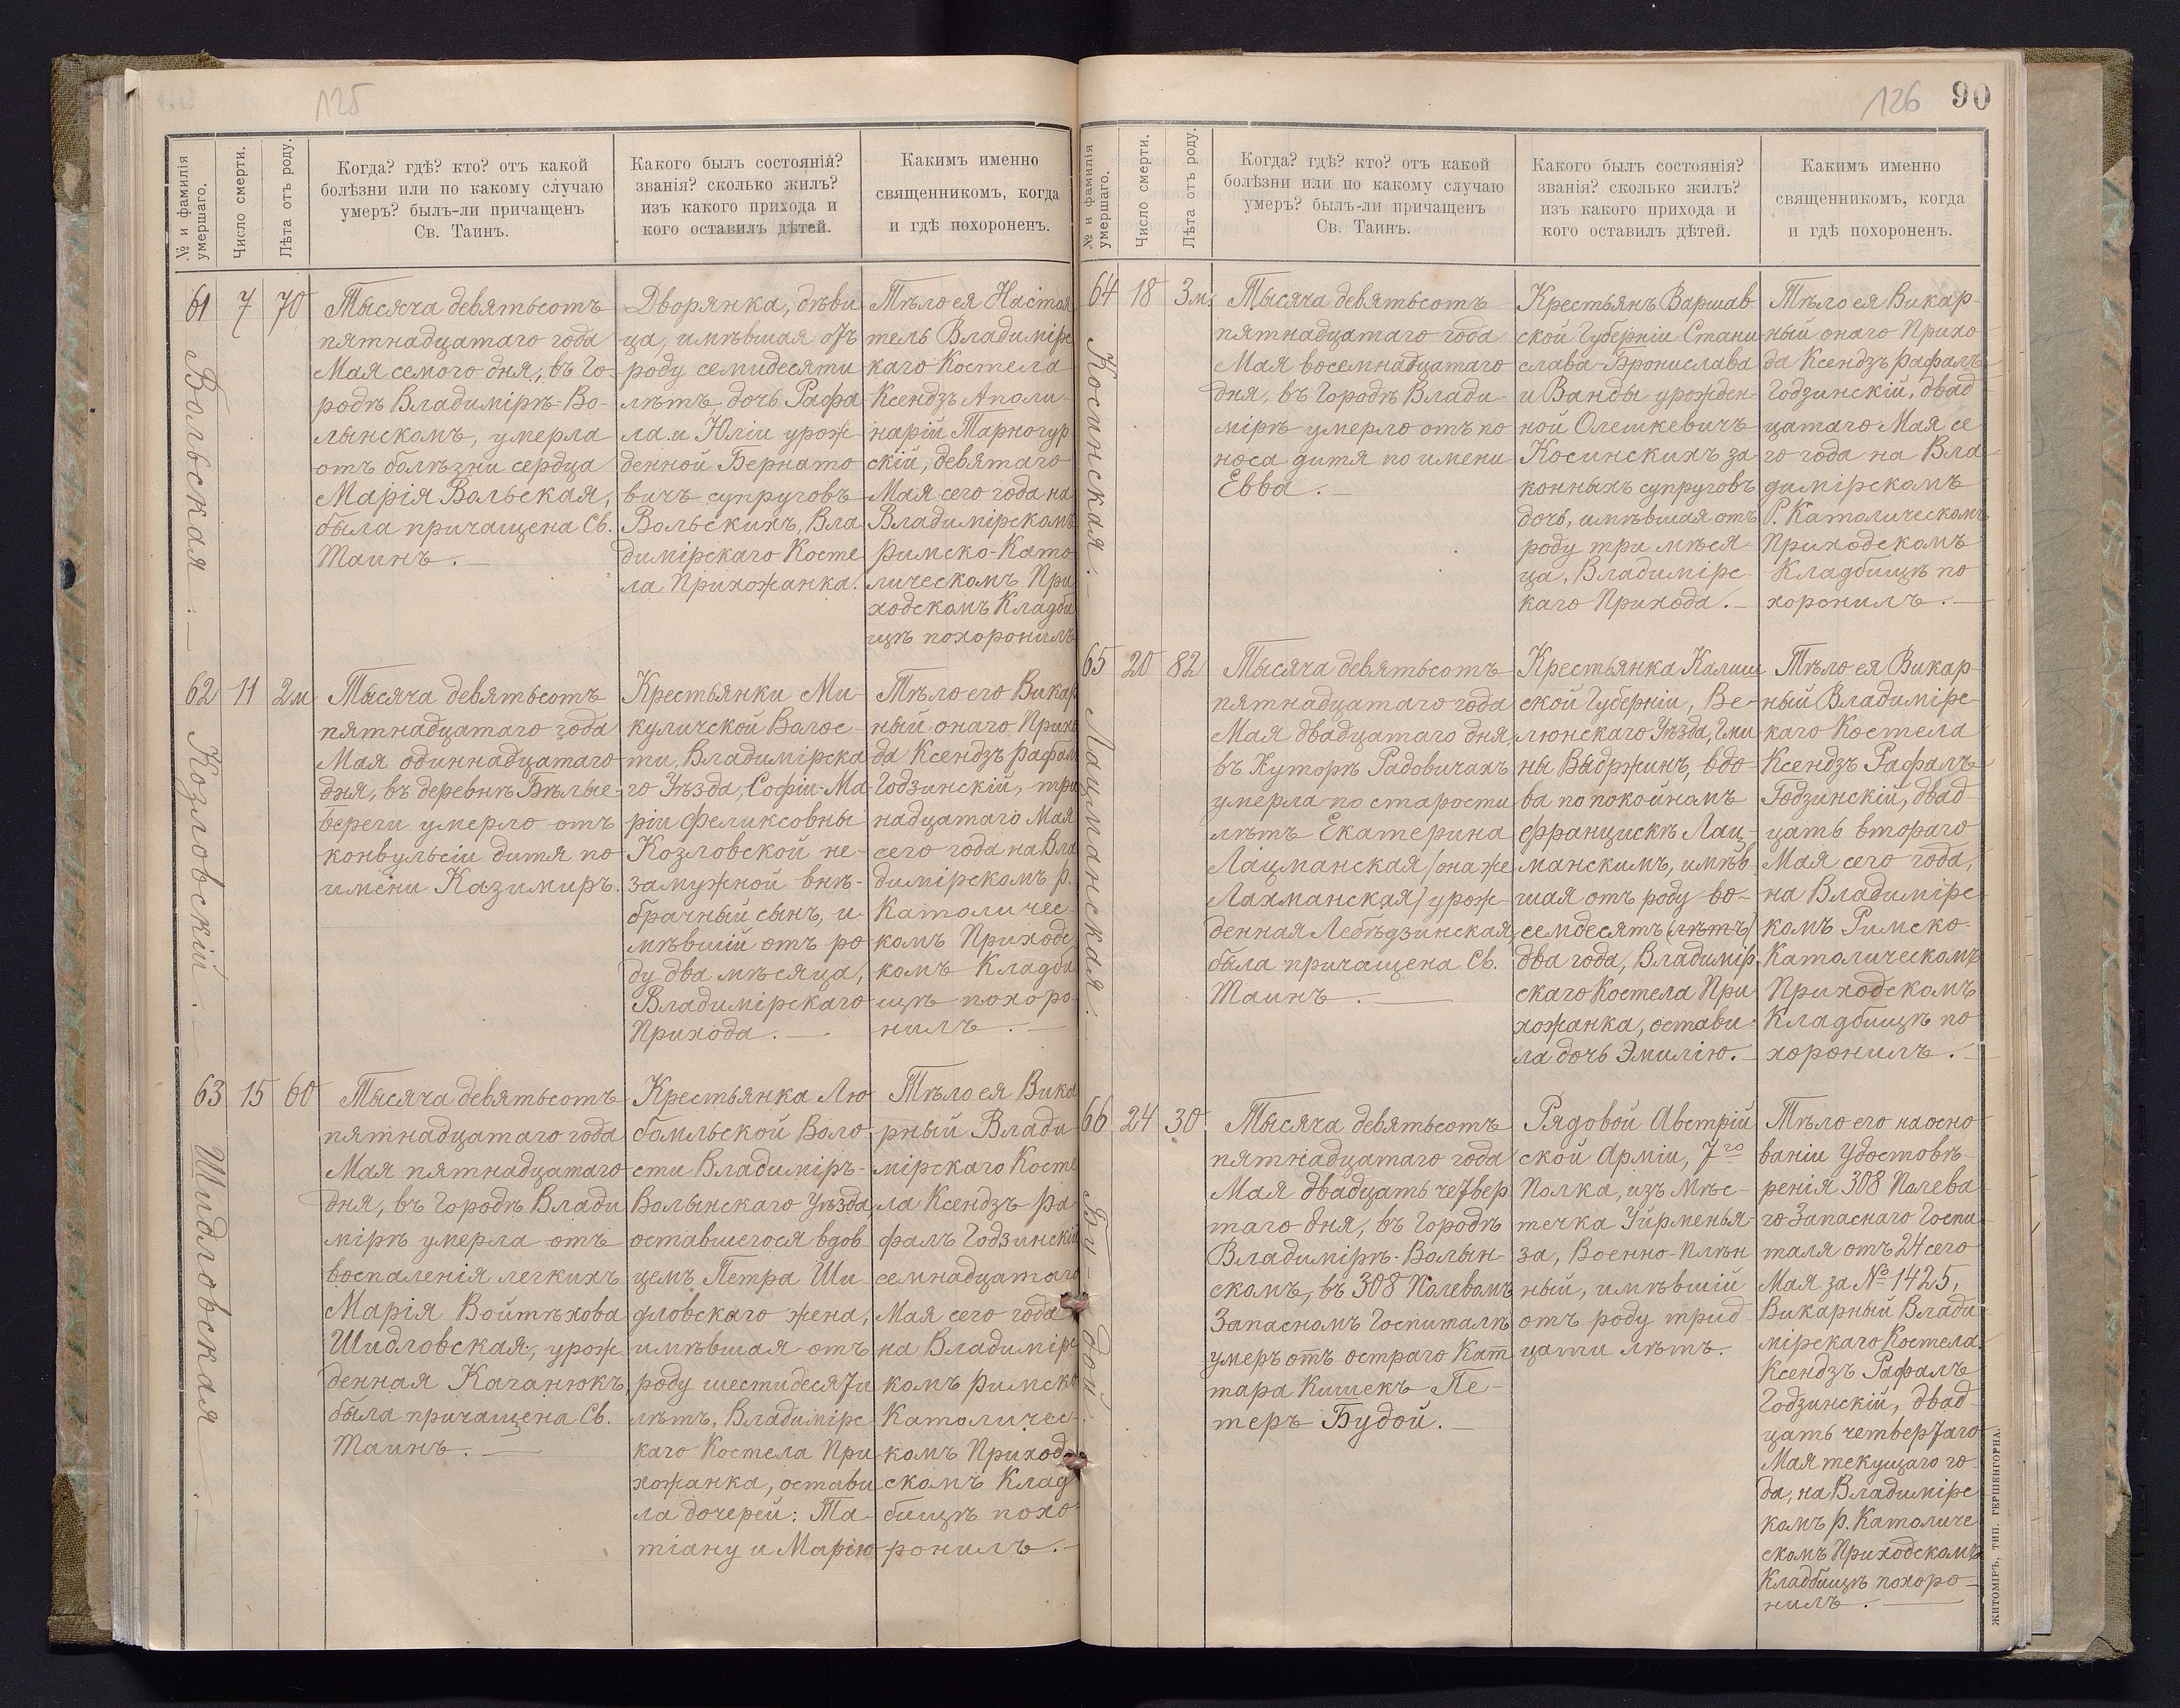 125
№ и фамилія
умершаго.
Число смерти.
Лѣта отъ роду.
Когда? гдѣ? кто? отъ какой
болѣзни или по какому случаю
умеръ? былъ-ли причащенъ
Св. Таинъ.
Какого былъ состоянія?
званія? сколько жилъ?
изъ какого прихода и
кого оставилъ дѣтей.
Какимъ именно
священникомъ, когда
и гдѣ похороненъ.
61
Вольская.
7
70
Тысяча девятьсотъ
пятнадцатаго года
Мая семого дня, въ Го-
родѣ Владимірѣ-Во-
лынскомъ, умерла
отъ болѣзни сердца
Марія Вольская,
была причащена Св.
Таинъ.
Дворянка, дѣви
ца, имѣвшая отъ
роду семидесяти
лѣтъ, дочь Рафа
ла и Юліи урож
денной Бернато
вичъ супруговъ
Вольскихъ, Вла
димірскаго Косте
ла Прихожанка.
Тѣло ея Настоя
тель Владимірс
каго Костела
Ксендзъ Аполи-
нарій Тарногур
скій, девятаго
Мая сего года на
Владимірскомъ
Римско-Като
лическомъ При
ходскомъ Кладби
щѣ похоронилъ
62
Козловскій.
11
2 м
Тысяча девятьсотъ
пятнадцатаго года
Мая одиннадцатаго
дня, въ деревнѣ Бѣлые-
береги умерло отъ
конвульсіи дитя по
имени Казимиръ.
Крестьянки Ми-
куличской Волос-
ти, Владимірска
го Уѣзда, Софіи-Ма
ріи Феликсовны
Козловской не-
замужной внѣ-
брачный сынъ, и-
мѣвшій отъ ро
ду два мѣсяца,
Владимірскаго
Прихода.
Тѣло его Викар
ный онаго Прихо
да Ксендзъ Рафалъ
Годзинскій, три
надцатаго Мая
сего года на Вла
димірскомъ Р.
Католичес-
комъ Приходс
комъ Кладби
щѣ похоро-
нилъ.
63
Шидловская.
15
60
Тысяча девятьсотъ
пятнадцатаго года
Мая пятнадцатаго
дня, въ Городѣ Влади
мірѣ умерла отъ
воспаленія легкихъ
Марія Войтѣхова
Шидловская, урож
денная Качанюкъ,
была причащена Св.
Таинъ.
Крестьянка Лю
бомльской Воло
сти Владиміръ-
Волынскаго Уѣзда,
оставшегося вдов
цемъ Петра Ши-
дловскаго жена,
имѣвшая отъ
роду шестидесяти
лѣтъ, Владимірс
каго Костела При
хожанка, остави
ла дочерей: Та-
тіану и Марію
Тѣло ея Вика
рный Влади
мірскаго Косте
ла Ксендзъ Ра
фалъ Годзинскій
семнадцатаго
Мая сего года
на Владимірс
комъ Римско
Католичес-
комъ Приход
скомъ Клад
бищѣ похо
ронилъ.
126
90
№ и фамилія
умершаго.
Число смерти.
Лѣта отъ роду.
Когда? гдѣ? кто? отъ какой
болѣзни или по какому случаю
умеръ? былъ-ли причащенъ
Св. Таинъ.
Какого былъ состоянія?
званія? сколько жилъ?
изъ какого прихода и
кого оставилъ дѣтей.
Какимъ именно
священникомъ, когда
и гдѣ похороненъ.
64
Косинская.
18
3 м.
Тысяча девятьсотъ
пятнадцатаго года
Мая восемнадцатаго
дня, въ Городѣ Влади-
мірѣ умерло отъ по
носа дитя по имени
Евва.
Крестьянъ Варшав
ской Губерніи Стани
слава-Бронислава
и Ванды урожден-
ной Олешкевичъ
Косинскихъ за-
конныхъ супруговъ
дочь, имѣвшая отъ
роду три мѣся-
ца, Владимірс-
каго Прихода.
Тѣло ея Викар-
ный онаго Прихо
да Ксендзъ Рафалъ
Годзинскій, двад
цатаго Мая се
го года на Вла-
димірскомъ
Р. Католическомъ
Приходскомъ
Кладбищѣ по
хоронилъ.
65
Лацманская.
20
82
Тысяча девятьсотъ
пятнадцатаго года
Мая двадцатаго дня,
въ Хуторѣ Радовичахъ
умерла по старости
лѣтъ Екатерина
Лацманская /онаже
Лахманская/ урож-
денная Лебѣдзинская,
была причащена Св.
Таинъ.
Крестьянка Калиш
ской Губерніи, Ве-
люнскаго Уѣзда, Гми
ны Выдржинъ, вдо
ва по покойномъ
Францискѣ Лац-
манскимъ, имѣв
шая отъ роду во-
семдесятъ (лѣтъ)
два года, Владимір
скаго Костела При
хожанка, остави-
ла дочь Эмилію.
Тѣло ея Викар-
ный Владимірс
каго Костела
Ксендзъ Рафалъ
Годзинскій, двад
цать втораго
Мая сего года,
на Владимірс
комъ Римско-
Католическомъ
Приходскомъ
Кладбищѣ по
хоронилъ.
66
Бу-дой.
24
30
Тысяча девятьсотъ
пятнадцатаго года
Мая двадцать четвер
таго дня, въ Городѣ
Владимірѣ-Волын-
скомъ, въ 308 Полевомъ
Запасномъ Госпиталѣ
умеръ отъ остраго Кат
тара Кишекъ Пе-
теръ Будой.
Рядовой Австрій
ской Арміи, 7го
Полка, изъ Мѣс-
течка Уйрменья-
за, Военно-Плѣн
ный, имѣвшій
отъ роду трид
цати лѣтъ.
Тѣло его на осно
ваніи Удостовѣ-
ренія 308 Полева
го Запаснаго Госпи
таля отъ 24 сего
Мая за № 1425,
Викарный Влади
мірскаго Костела
Ксендзъ Рафалъ
Годзинскій, двад-
цать четвертаго
Мая текущаго го
да, на Владимірс
комъ Р. Католиче
скомъ Приходскомъ
Кладбищѣ похоро-
нилъ.
ЖИТОМІРЪ, ТИП. ГЕРШЕНГОРНА.